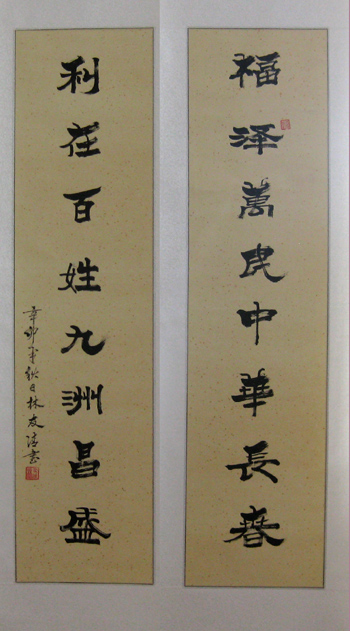 福泽萬民中華長春
利在百姓九洲昌盛
辛卯年秋日林友清書